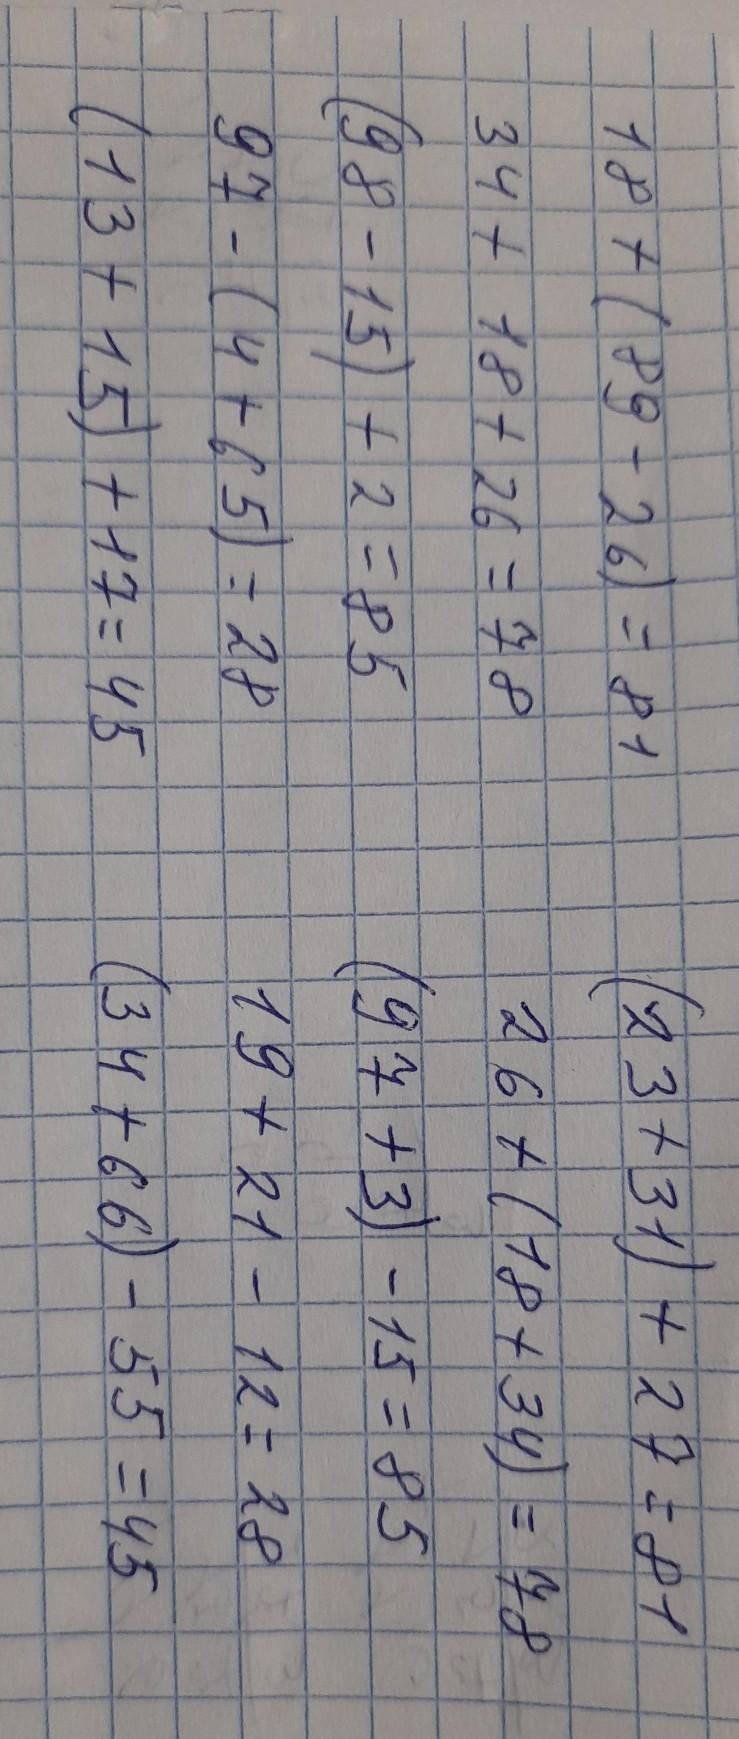 18 + (89 - 26) = 81
34 + 18 + 26 = 78
(98 - 15) + 2 = 85
97 - (4 + 65) = 28
(13 + 15) + 17 = 45
(23 + 31) + 27 = 81
26 + (18 + 34) = 78
(97 + 3) - 15 = 85
19 + 21 - 12 = 28
(34 + 66) - 55 = 45